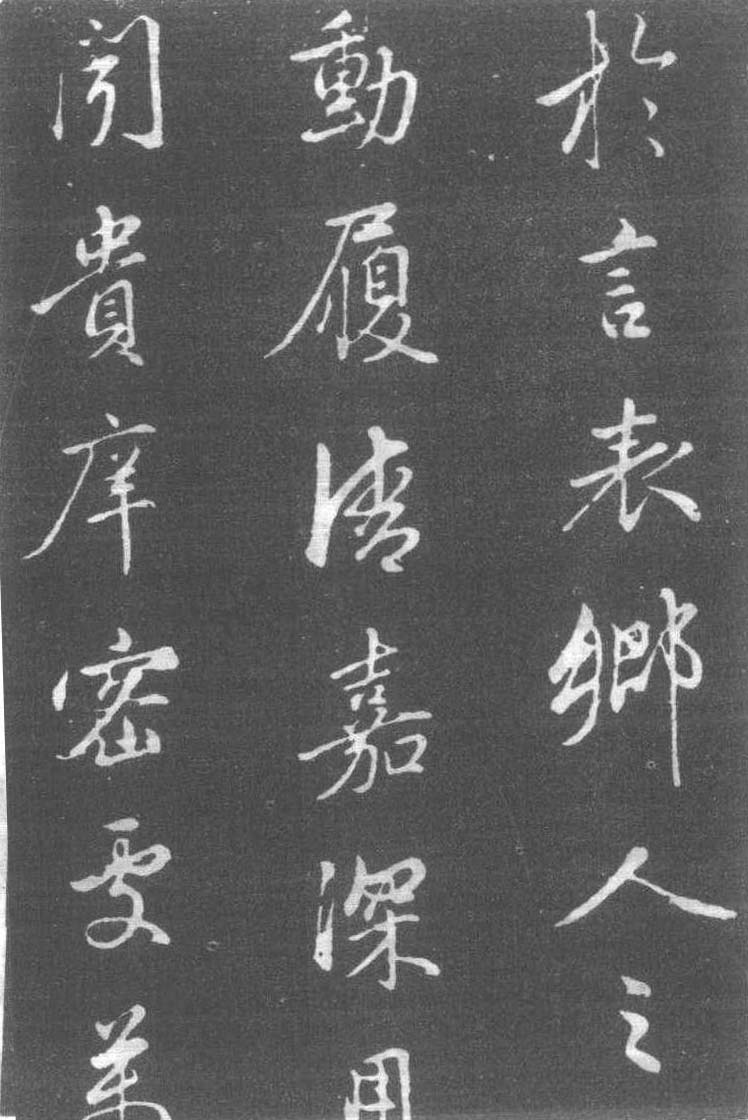 於言表鄉人之
動履清嘉深用
貴庠密